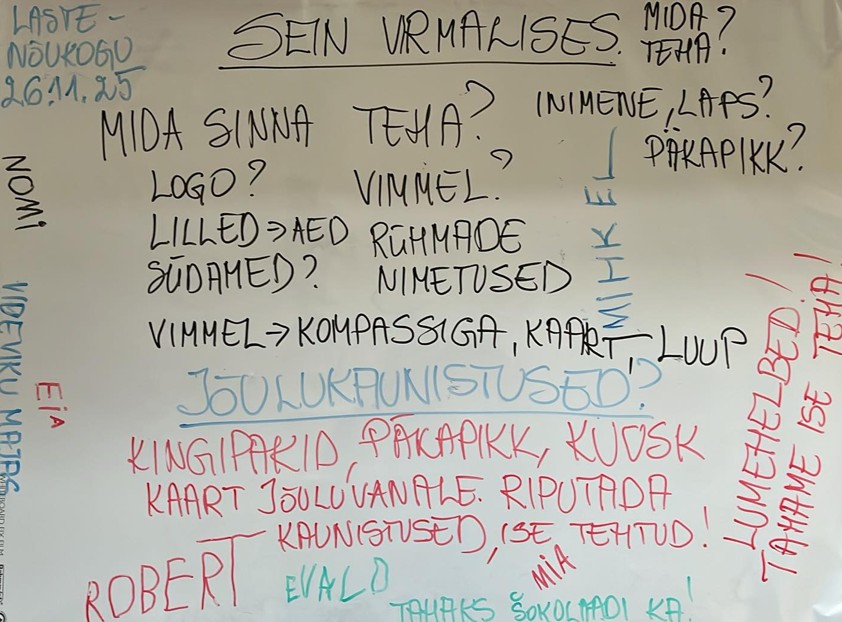 LASTE-
NÕUKOGU
26.11.25
SEIN VIRMALISES.
MIDA
TEHA?
MIDA SINNA TEHA?
INIMENE, LAPS?
PÄKAPIKK?
LOGO?
VIMMEL?
LILLED⇒AED
RÜHMADE
SÜDAMED?
NIMETUSED
VIMMEL→KOMPASSIGA, KAART, LUUP
MIHKEL
NOMI
VIDEVIKU MAJAS
EiA
JÕULUKAUNISTUSED?
KINGIPAKID, PÄKAPIKK, KUUSK
KAART JÕULUVANALE. RIPUTADA
KAUNISTUSED, ISE TEHTUD!
LUMEHELBED!
TAHAME ISE TEHA!
ROBERT
EVALD
MIA
TAHAKS ŠOKOLAADI KA!